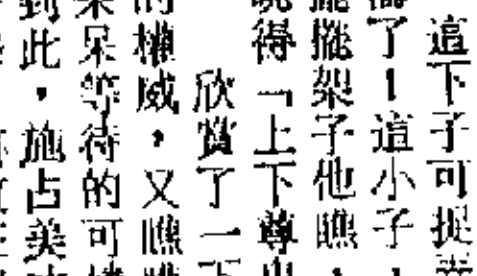 這下子可捉
了！這小子，
擺擺架子他瞧，
曉得「上下尊
欣賞了一下
的權威，又瞧瞧
呆呆等待的可
到此，施占美